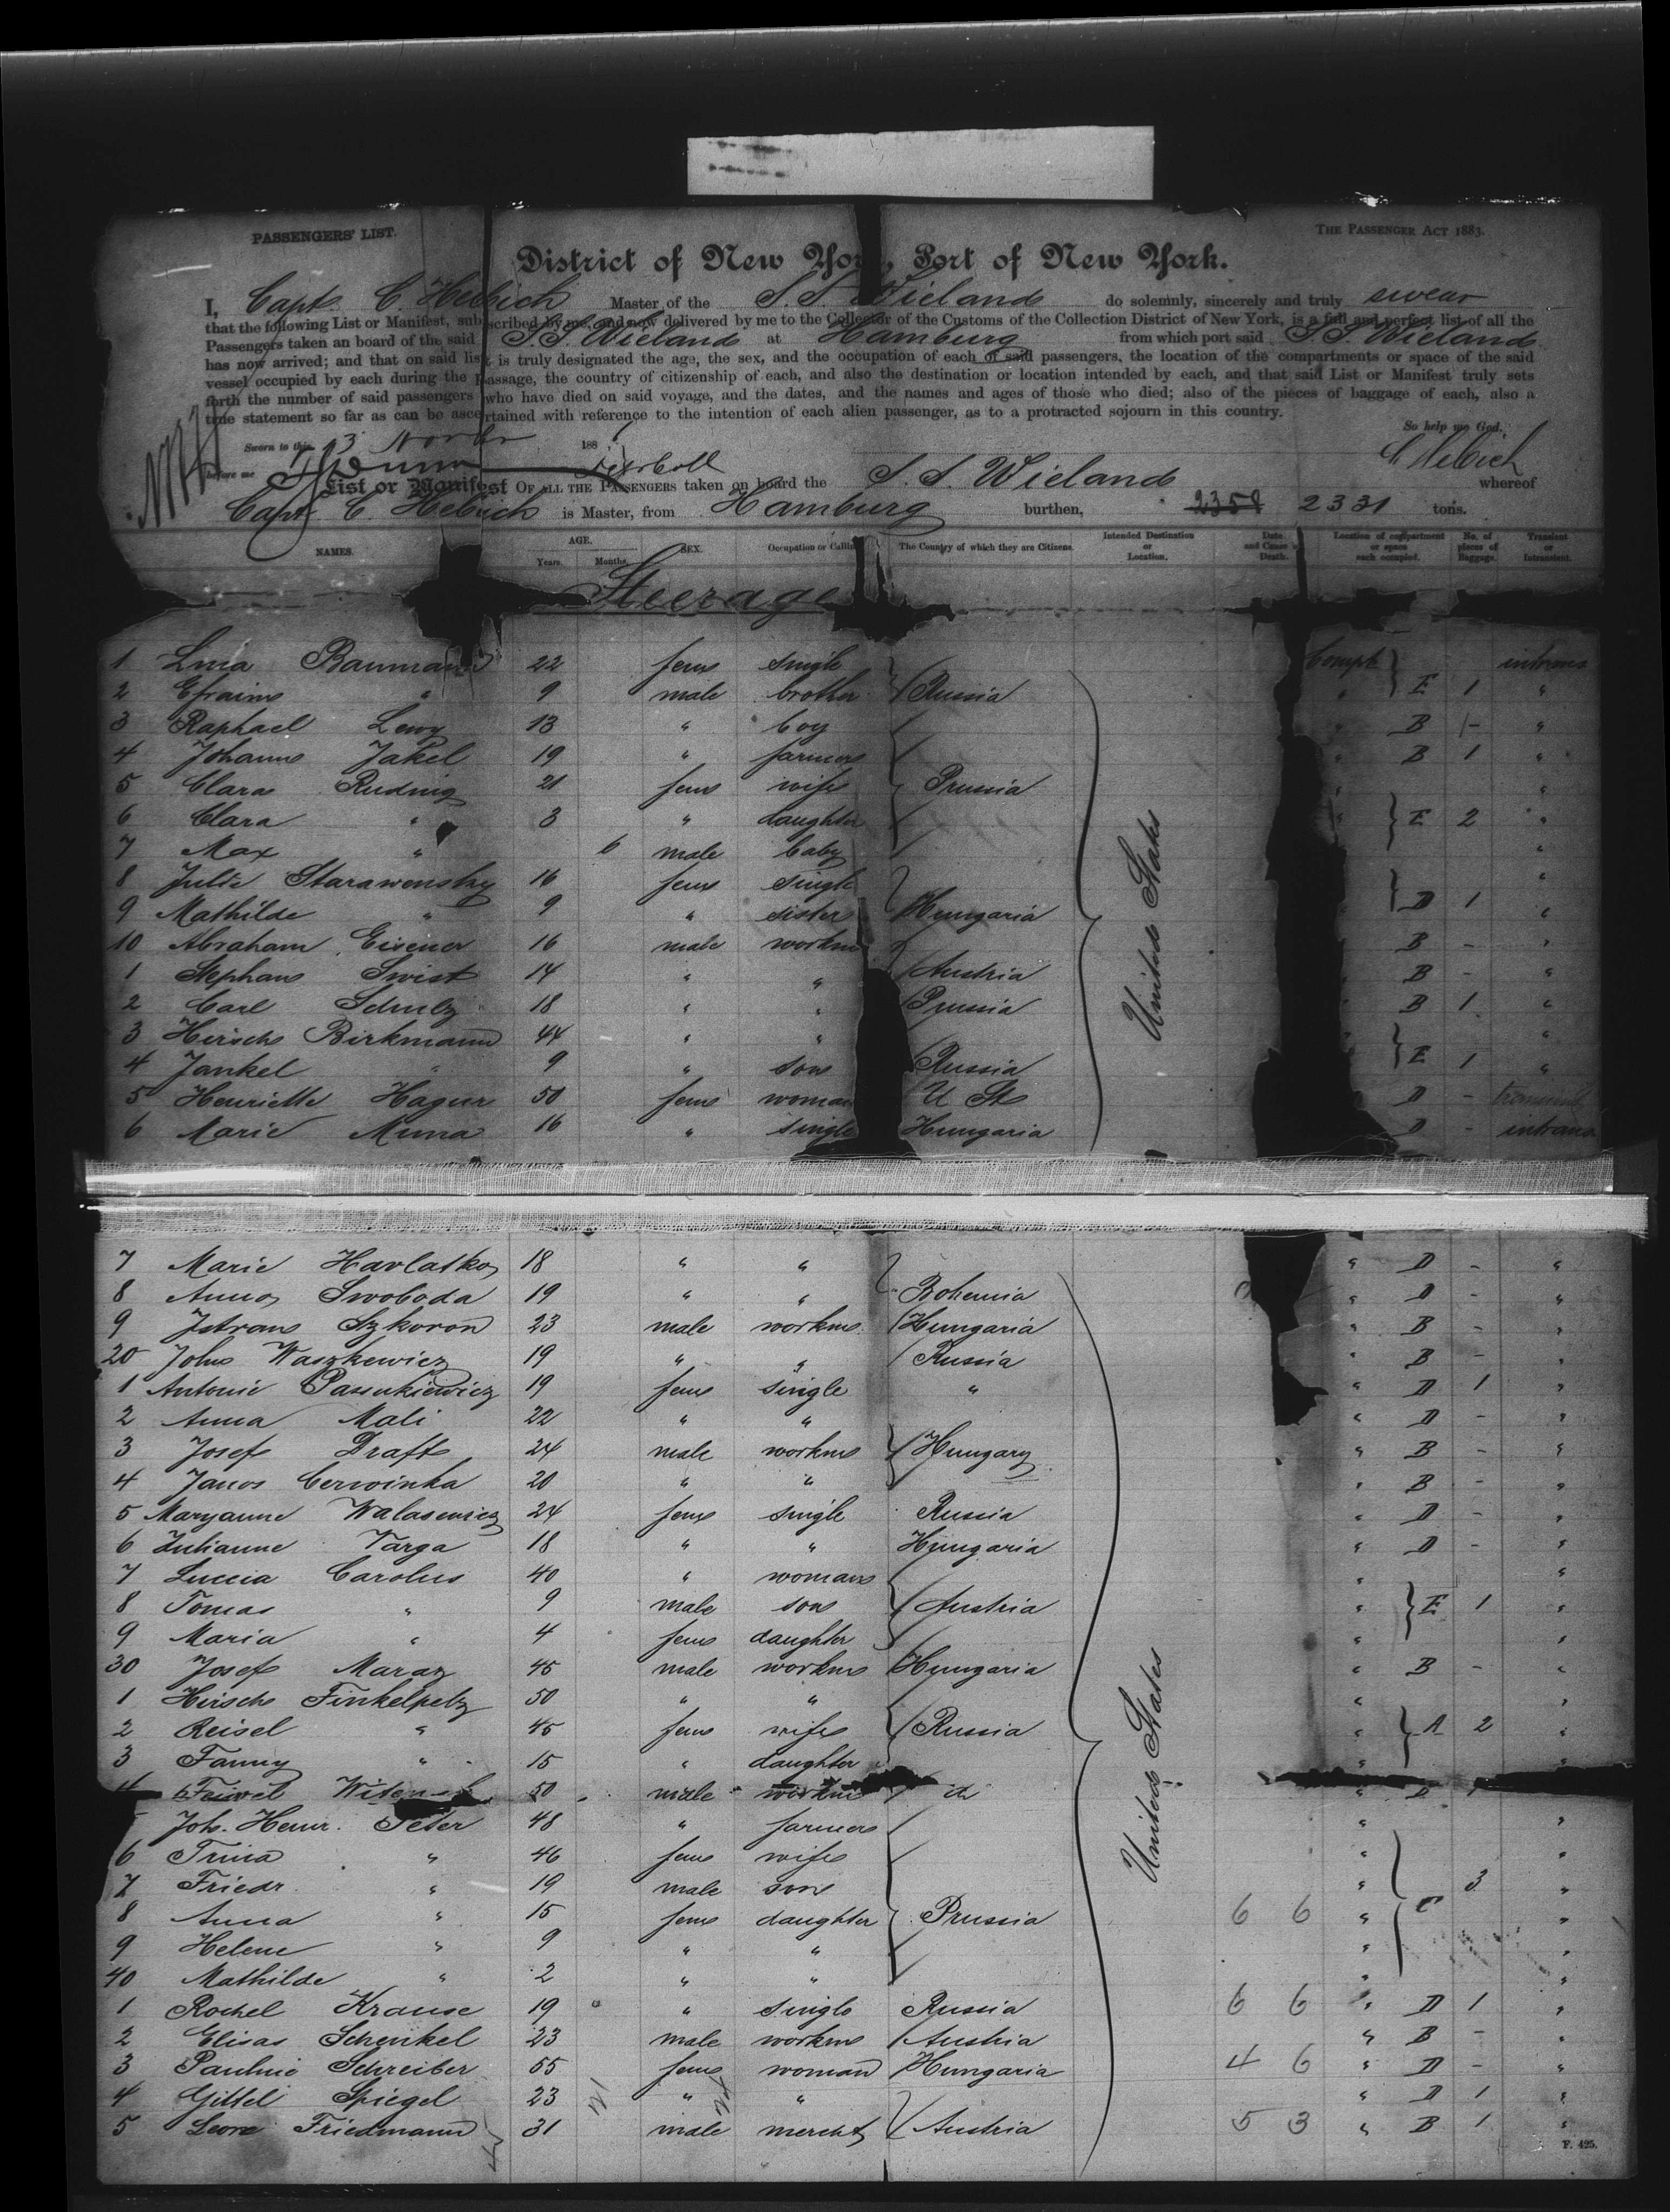 PASSENGERS' LIST.
THE PASSENGER ACT 1883.
District of New York, Port of New York.
I, Capt. C. Hebich Master of the S. S. Wieland do solemnly, sincerely and truly swear
that the following List or Manifest, subscribed by me, and now delivered by me to the Collector of the Customs of the Collection District of New York, is a full and perfect list of all the
Passengers taken an board of the said S. S. Wieland at Hamburg from which port said S. S. Wieland
has now arrived; and that on said list is truly designated the age, the sex, and the occupation of each of said passengers, the location of the compartments or space of the said
vessel occupied by each during the passage, the country of citizenship of each, and also the destination or location intended by each, and that said List or Manifest truly sets
forth the number of said passengers who have died on said voyage, and the dates, and the names and ages of those who died; also of the pieces of baggage of each, also a
true statement so far as can be ascertained with reference to the intention of each alien passenger, as to a protracted sojourn in this country.
So help me God,
Sworn to this 188
C Hebich
before me
List or Manifest OF ALL THE PASSENGERS taken on board the S. S. Wieland whereof
Capt. C. Hebich is Master, from Hamburg burthen, 2331 tons.
NAMES. AGE. Years. Months. SEX. Occupation or Calling The Country of which they are Citizens. Intended Destination or Location. Date and Cause of Death. Location of compartment or space each occupied. No. of pieces of Baggage. Transient or Intransient.
Steerage
1 Baumann 22 fem single Compt intrans
2 Efraim " 9 male brother Russia " E 1 "
3 Raphael Lewy 13 " boy " B - "
4 Johann Jakel 19 " farmer " B 1 "
5 Clara Ruding 21 fem wife Prussia " "
6 Clara " 3 " daughter " E 2 "
7 Max " 6 male baby "
8 Julie Starawensky 16 fem single "
9 Mathilde " 9 " sister Hungaria " D 1 "
10 Abraham Eisener 16 male workm B - "
1 Stephan Swist 14 " " Austria " B - "
2 Carl Schulz 18 " " Prussia " B 1 "
3 Hirsch Birkmann 44 " " "
4 Jankel " 9 " son Russia E 1 "
5 Henriette Hagur 50 fem woman U St D - transient
6 Marie Muna 16 " single Hungaria D - intrans
United States
7 Marie Havlatko 18 " " " D - "
8 Anna Swoboda 19 " " Bohemia " D - "
9 Szkoron 23 male workm Hungaria " B - "
20 John Waszkewicz 19 " " Russia " B - "
1 Antonie Passukiewicz 19 fem single " " D 1 "
2 Anna Mali 22 " " " D - "
3 Josef Draft 24 male workm Hungary " B - "
4 Janos Cerwinka 20 " " " B - "
5 Maryanne Walasewicz 24 fem single Russia " D - "
6 Julianne Varga 18 " " Hungaria " D - "
7 Luccia Carolus 40 " woman " "
8 Tomas " 9 male son Austria " E 1 "
9 Maria " 4 fem daughter " "
30 Josef Maraz 45 male workm Hungaria " B - "
1 Hirsch Finkelpelz 50 " " " "
2 Reisel " 45 fem wife Russia " A 2 "
3 Fanny " 15 " daughter " "
4 Faiwel 50 male workm do "
Joh. Heinr. Peter 48 " farmer " "
6 Trina " 46 fem wife " "
7 Friedr. " 19 male son " 3 "
8 Anna " 15 fem daughter Prussia 6 6 " C "
9 Helene " 9 " " " "
40 Mathilde " 2 " " " "
1 Rochel Krause 19 " single Russia 6 6 " D 1 "
2 Elisas Schenkel 23 male workm Austria " B - "
3 Pauline Schreiber 55 fem woman Hungaria 4 6 " D - "
4 Gittel Spiegel 23 " " " D 1 "
5 Leon Friedmann 31 male mercht Austria 5 3 " B 1 "
United States
F. 425.